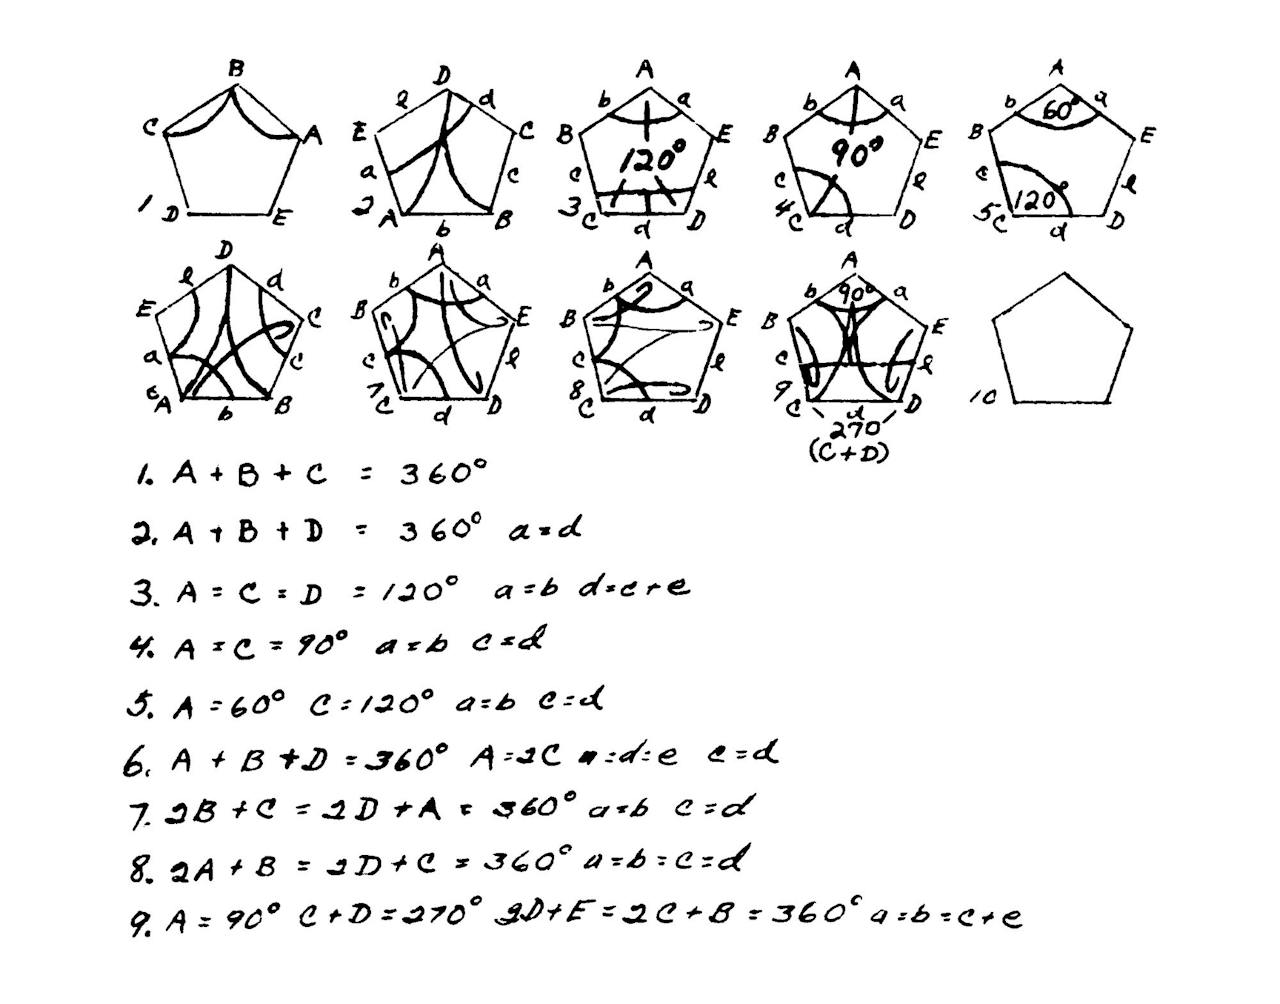 B D A A A
C A E e d C B b a E B b a E B b 60° a E
a c c 120° e c 90° e c e
1 D E 2 A b B 3 C d D 4 C d D 5 C 120 d D
D A A A
E e d C B b a E B b a E B b 90° a E
a c c e c e c e
6 A b B 7 C d D 8 C d D 9 C d D 10
270
(C+D)
1. A + B + C = 360°
2. A + B + D = 360° a=d
3. A = C = D = 120° a=b d=c+e
4. A = C = 90° a=b c=d
5. A = 60° C = 120° a=b c=d
6. A + B + D = 360° A=2C a=d=e c=d
7. 2B + C = 2D + A = 360° a=b c=d
8. 2A + B = 2D + C = 360° a=b=c=d
9. A = 90° C+D=270° 2D+E=2C+B=360° a=b=c+e